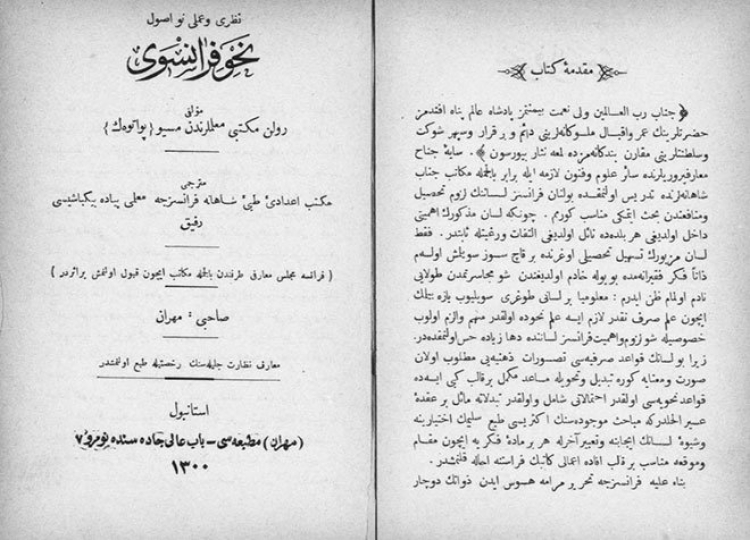 نظری و عملی نو اصول
نحو فرانسوی
مؤلفی
روان مكتبی معلملرندن مسیو { پواتوەك }
مترجمی
مكتب اعدادیٔ طبیٔ شاهانه فرانسزجه معلمی پیاده بیكباشیسی
رفیق
( فرانسه مجلس معارفی طرفندن بالجمله مكاتب ایچون قبول اولنمش بر اثردر )
صاحبی : مهران
معارف نظارت جلیله‌سنك رخصتیله طبع اولنمشدر
استانبول
( مهران ) مطبعه‌سی – باب عالی جاده‌سنده نومرو ٧
١٣٠٠
مقدمهٔ كتاب
﴿ جناب رب العالمین ولی نعمت بیمنتمز پادشاه عالم پناه افندمز
حضرتلرینك عمر و اقبال ملوكانه‌لرینی دائم و برقرار و سپهر شوكت
وسلطنتلرینی مقارن بندكانه‌مزده لمعه نثار بیورسون ﴾ . سایهٔ جناح
معارفپروریلرنده سائر علوم وفنون لازمه ایله برابر بالجمله مكاتب جناب
شاهانه‌لرنده تدریس اولنمقده بولنان فرانسز لساننك لزوم تحصیل
ومنافعندن بحث ایتمكی مناسب كوردم . چونكه لسان مذكورك اهمیتی
داخل اولدیغی هر بلده‌ده نائل اولدیغی التفات ورغبتله ثابتدر . فقط
لسان مزبورك تسهیل تحصیلی اوغرنده بر قاچ سوز سویلمش اولسه‌م
ذاتاً فكر فقیرانه‌مده بو یوله خادم اولدیغندن شو مجاسرتمدن طولایی
نادم اولمام ظن ایدرم : معلومیا بر لسانی طوغری سویلیوب یازه‌بیلمك
ایچون علم صرف نقدر لازم ایسه علم نحوده اولقدر مهم والزم اولوب
خصوصیله شو لزوم واهمیت فرانسز لساننده دها زیاده حس اولنمقده‌در.
زیرا بو لسانك قواعد صرفیه‌سی تصورات ذهنیه‌یی مطلوب اولان
صورت ومعنایه كوره تبدیل وتحویله مساعد مكمل بر قالب كبی ایسه‌ده
قواعد نحویه‌سی اولقدر احتمالاتی شامل واولقدر تبدلاته مائل بر عقدهٔ
عسیر الحلدركه مباحث موجوده‌سنك اكثریسی طبع سلیمك اختیارینه
وشیوهٔ لسانك ایجابنه وتعبیر آخرله هر بر مادهٔ فكریه ایچون مقام
وموقعه مناسب بر قالب افاده اعمالی كاتبك فراستنه احاله قلنمشدر .
بناءً علیه فرانسزجه تحریر مرامه هوس ایدن ذواتك دوچار